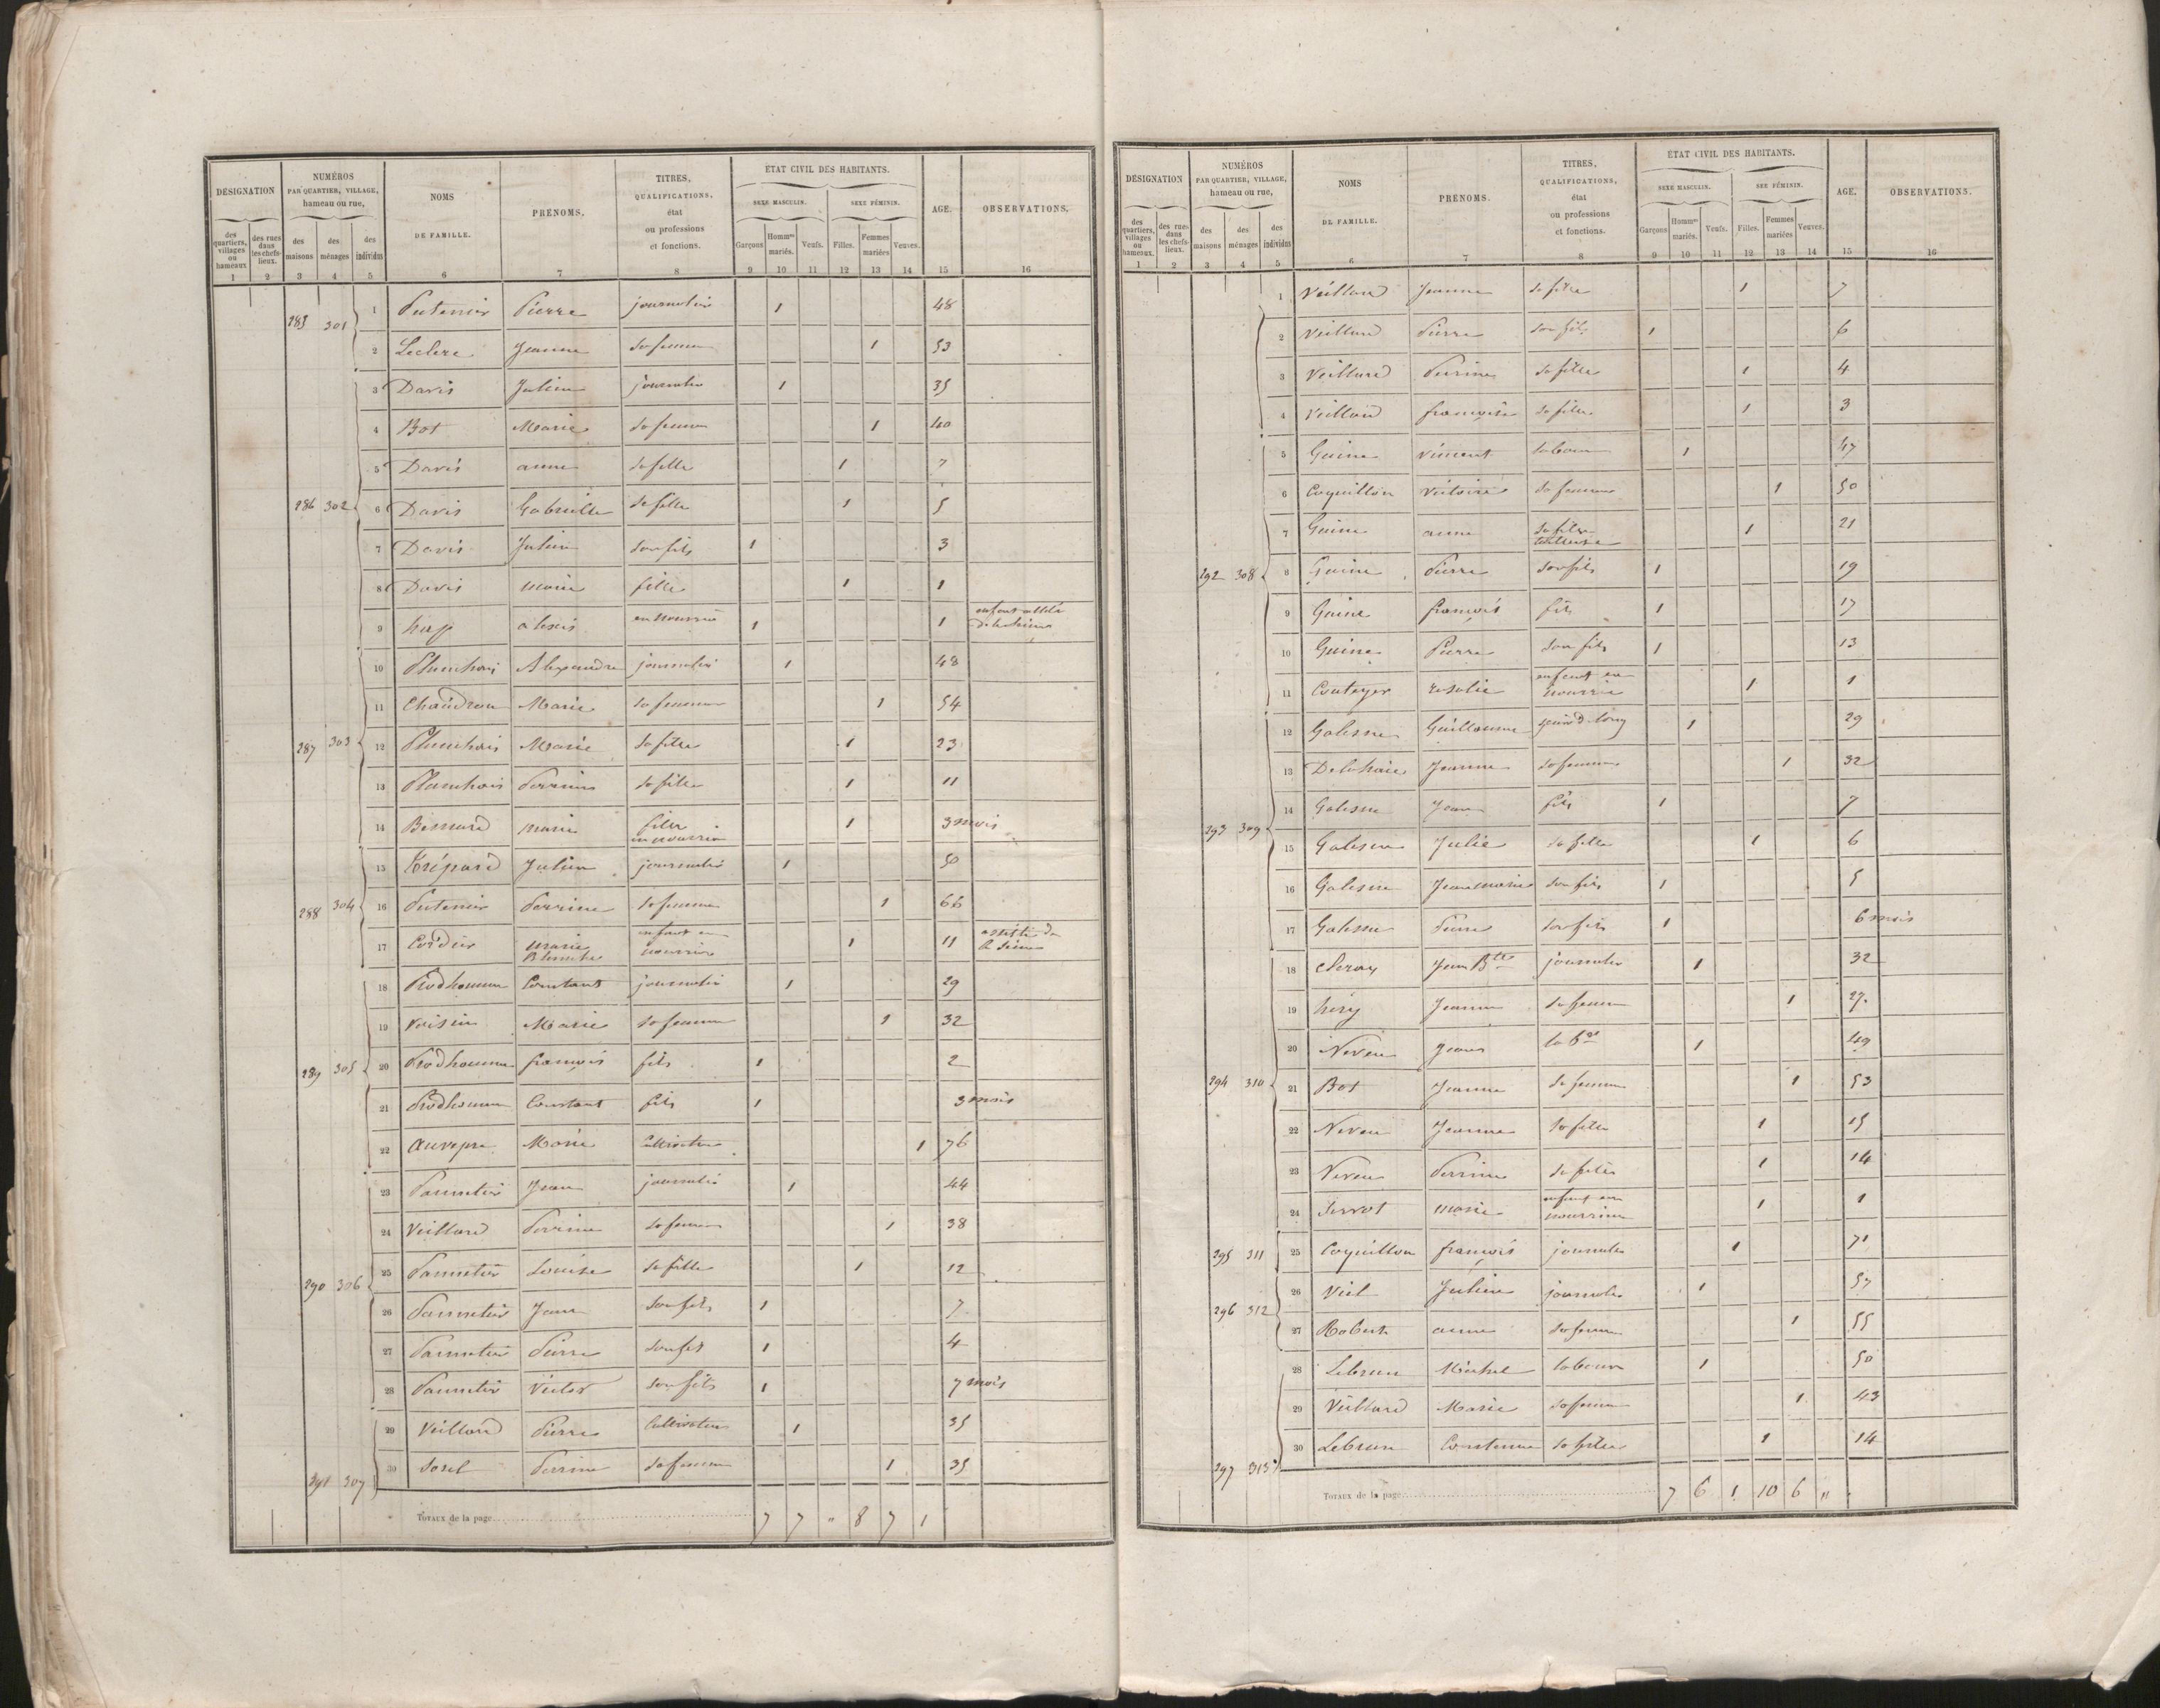 DÉSIGNATION
NUMÉROS
PAR QUARTIER, VILLAGE,
hameau ou rue,
NOMS
DE FAMILLE.
PRÉNOMS.
TITRES,
QUALIFICATIONS,
état
ou professions
et fonctions.
ETAT CIVIL DES HABITANTS.
SEXE MASCULIN.
SEXE FÉMININ.
AGE.
OBSERVATIONS.
des quartiers, villages ou hameaux
des rues dans les chefs-lieux.
des maisons
des ménages
des individus
Garçons
Hommes mariés.
Veufs.
Filles.
Femmes mariées
Veuves.
1 2 3 4 5 6 7 8 9 10 11 12 13 14 15 16
301 1 Pierre journalier 1 48
2 Leclerc Jeanne sa femme 1 53
3 Davis Julien journalier 1 35
4 Bot Marie sa femme 1 40
5 Davis anne sa fille 1 7
286 302 6 Davis Gabrielle sa fille 1 5
7 Davis Julien son fils 1 3
8 Davis marie fille 1 1
9 alexis en nourrice 1 1
10 Alexandre journalier 1 48
11 Chaudron Marie sa femme 1 54
287 303 12 Marie sa fille 1 23
13 Perrine sa fille 1 11
14 marie fille en nourrice 1 3 mois
15 Trépard Julien journalier 1 50
288 304 16 Perrine sa femme 1 66
17 Cordier marie Blanche enfant en nourrice 1 11 de la Seine
18 Prodhomme Constant journalier 1 29
19 Voisin Marie sa femme 1 32
289 305 20 Prodhomme françois fils 1 2
21 Prodhomme Constant fils 1 3 mois
22 Marie 1 76
23 Pannetier Jean journalier 1 44
24 Veillard Perrine sa femme 1 38
290 306 25 Pannetier Louise sa fille 1 12
26 Pannetier Jean son fils 1 7
27 Pannetier Pierre son fils 1 4
28 Pannetier Victor son fils 1 7 mois
29 Veillard Pierre Cultivateur 1 35
291 307 30 Sorel Perrine sa femme 1 35
TOTAUX de la page 7 7 " 8 7 1
DÉSIGNATION
NUMÉROS
PAR QUARTIER, VILLAGE,
hameau ou rue,
NOMS
DE FAMILLE.
PRÉNOMS.
TITRES,
QUALIFICATIONS,
état
ou professions
et fonctions.
ETAT CIVIL DES HABITANTS.
SEXE MASCULIN.
SEXE FÉMININ.
AGE.
OBSERVATIONS.
des quartiers, villages ou hameaux.
des rues dans les chefs-lieux.
des maisons
des ménages
des individus
Garçons
Hommes mariés.
Veufs.
Filles.
Femmes mariées
Veuves.
1 2 3 4 5 6 7 8 9 10 11 12 13 14 15 16
1 Veillard Jeanne sa fille 1 7
2 Veillard Pierre son fils 1 6
3 Veillard Perrine sa fille 1 4
4 Veillard françoise sa fille 1 3
5 Guine Vincent 1 47
6 Coquillon Victoire sa femme 1 50
7 Guine anne sa fille tailleuse 1 21
292 308 8 Guine Pierre son fils 1 19
9 Guine françois fils 1 17
10 Guine Pierre son fils 1 13
11 rosalie enfant en nourrice 1 1
12 Galesne Guillaume scieur de long 1 29
13 Delahaie Jeanne sa femme 1 32
293 309 14 Galesne Jean fils 1 7
15 Galesne Julie sa fille 1 6
16 Galesne Jean marie son fils 1 5
17 Galesne Pierre son fils 1 6 mois
18 Jean Bte journalier 1 32
19 Jeanne sa femme 1 27
20 Neveu Jean 1 49
294 310 21 Bot Jeanne sa femme 1 53
22 Neveu Jeanne sa fille 1 15
23 Neveu Perrine sa fille 1 14
24 marie enfant en nourrice 1 1
295 311 25 Coquillon françois journalier 1 71
296 312 26 Julien journalier 1 57
27 Robert anne sa femme 1 55
28 Lebrun Michel 1 50
29 Veillard Marie sa femme 1 43
297 313 30 Lebrun sa fille 1 14
TOTAUX de la page 7 6 1 10 6 "